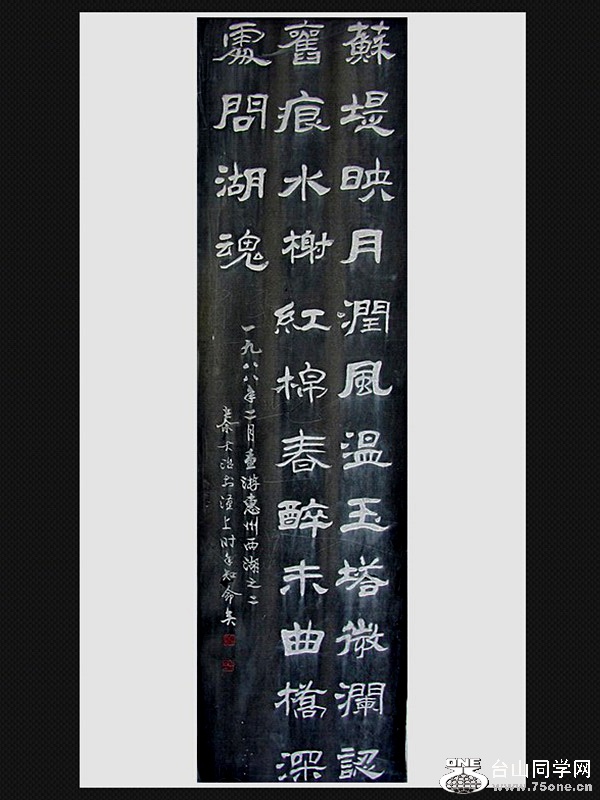 蘇堤映月潤風温玉塔微瀾認
舊痕水榭紅棉春醉未曲橋深
處問湖魂
一九八八年二月重游惠州西湖之二
上时年知命矣
台山同学网
www.75one.cn
ONE